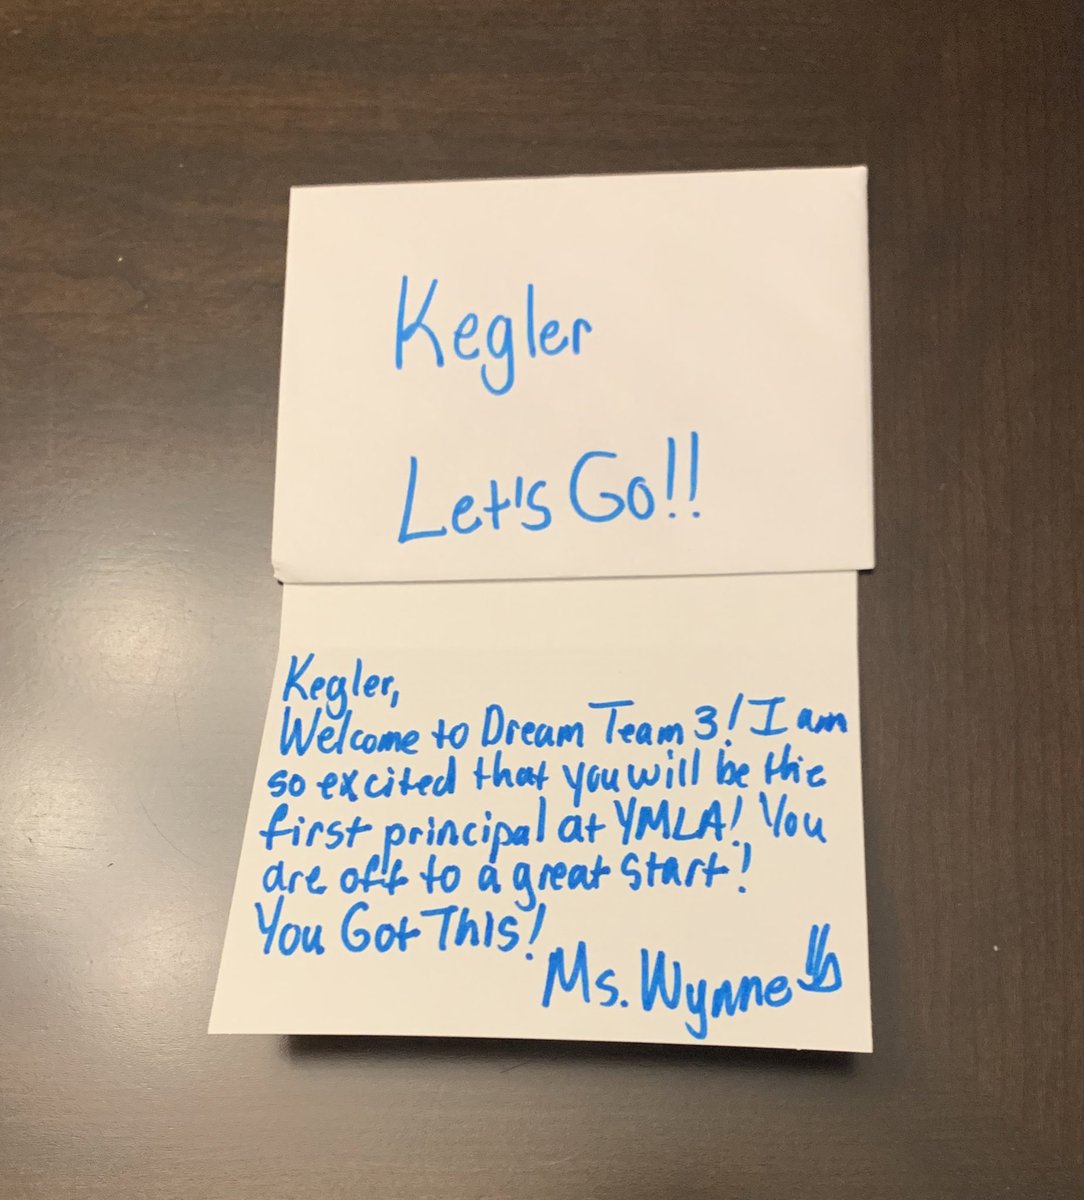 Kegler
Let's Go!!
Kegler,
Welcome to Dream Team 3! I am
so excited that you will be the
first principal at YMLA! You
are off to a great start!
You Got This!
Ms. Wynne